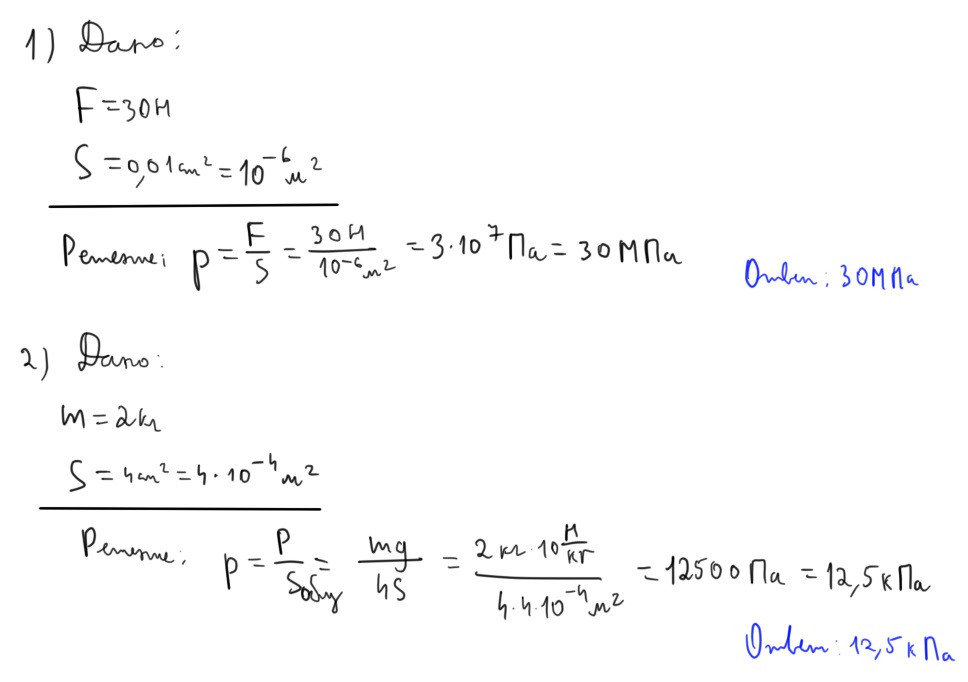 1) Дано:
F = 30Н
S = 0,01 см² = 10⁻⁶ м²
Решение: p = F/S = 30Н/10⁻⁶м² = 3·10⁷ Па = 30МПа
Ответ: 30МПа
2) Дано:
m = 2кг
S = 4см² = 4·10⁻⁴ м²
Решение: p = P/Sобщ = mg/4S = 2 кг·10 Н/кг / 4·4·10⁻⁴ м² = 12500 Па = 12,5 кПа
Ответ: 12,5 кПа